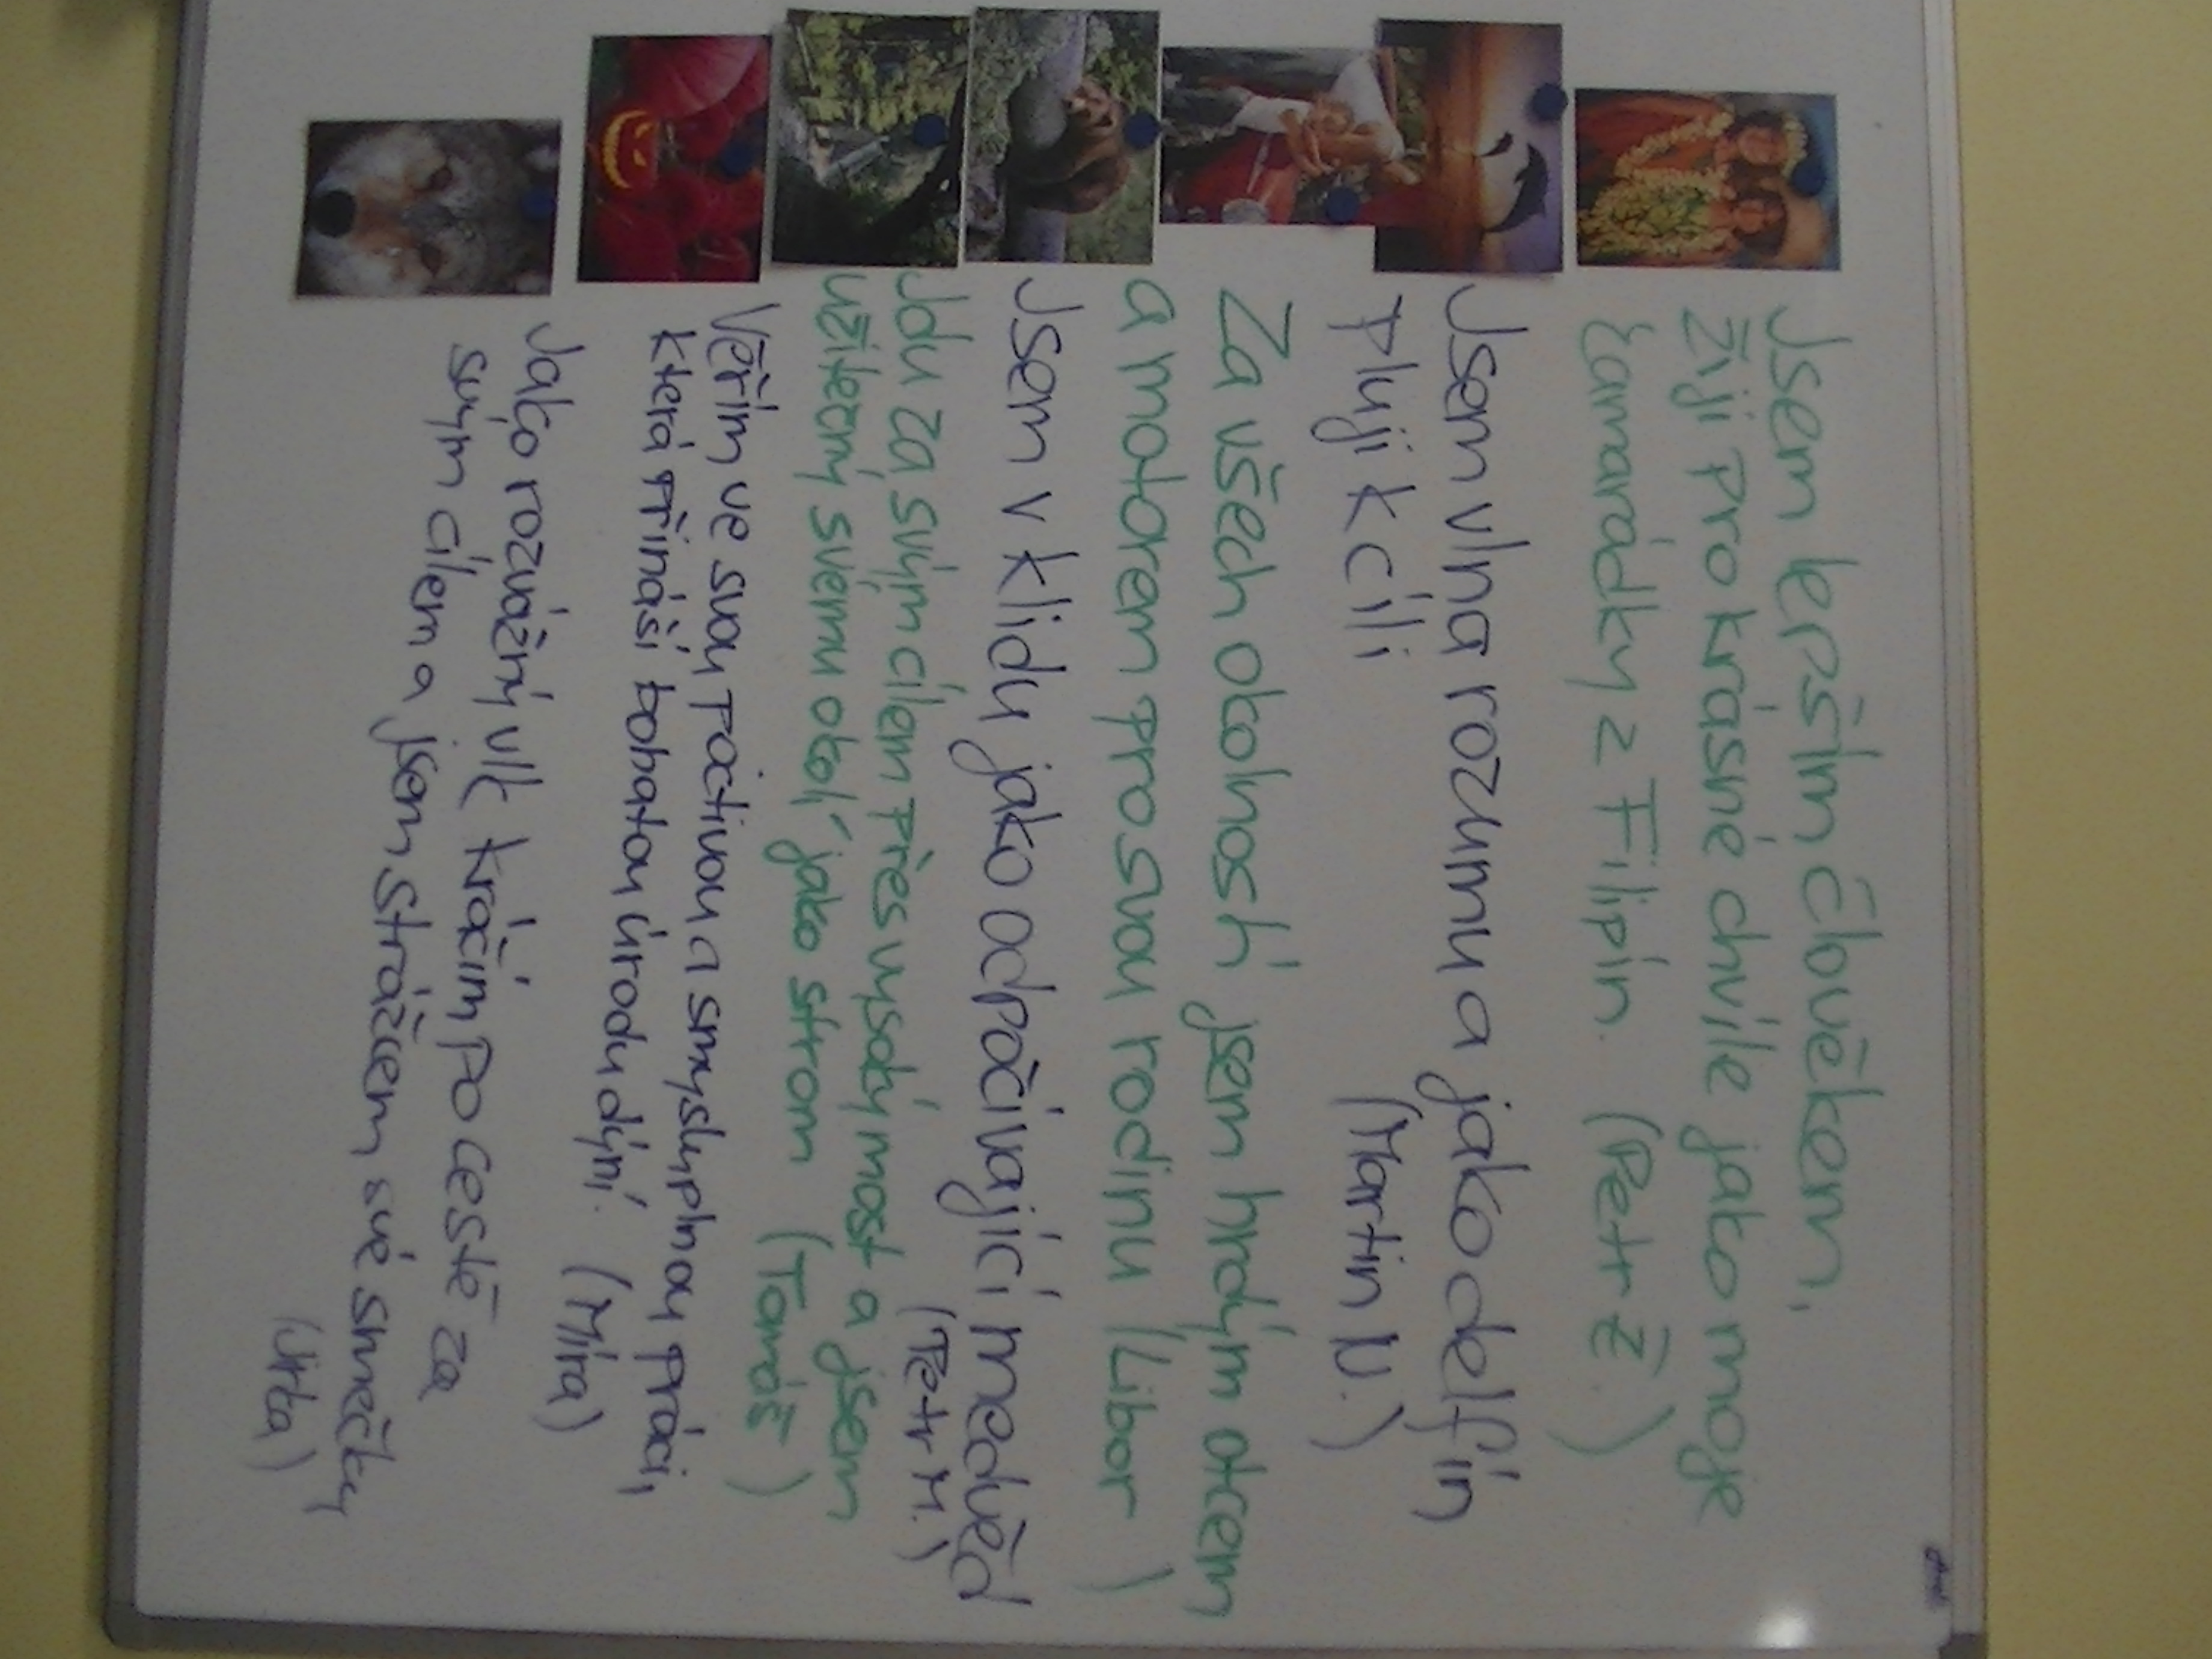 Jsem lepším člověkem,
žiji pro krásné chvíle jako moje
kamarádky z Filipín. (Petr Ž.)
Jsem vlna rozumu a jako delfín
pluji k cíli (Martin N.)
Za všech okolností jsem hrdým otcem
a motorem pro svou rodinu (Libor)
Jsem v klidu jako odpočívající medvěd
(Petr M.)
Jdu za svým cílem přes vysoký most a jsem
užitečný svému okolí jako strom (Tomáš)
Věřím ve svou poctivou a smysluplnou práci,
která přináší bohatou úrodu dýní. (Míra)
Jako rozvážný vlk kráčím po cestě za
svým cílem a jsem strážcem své smečky